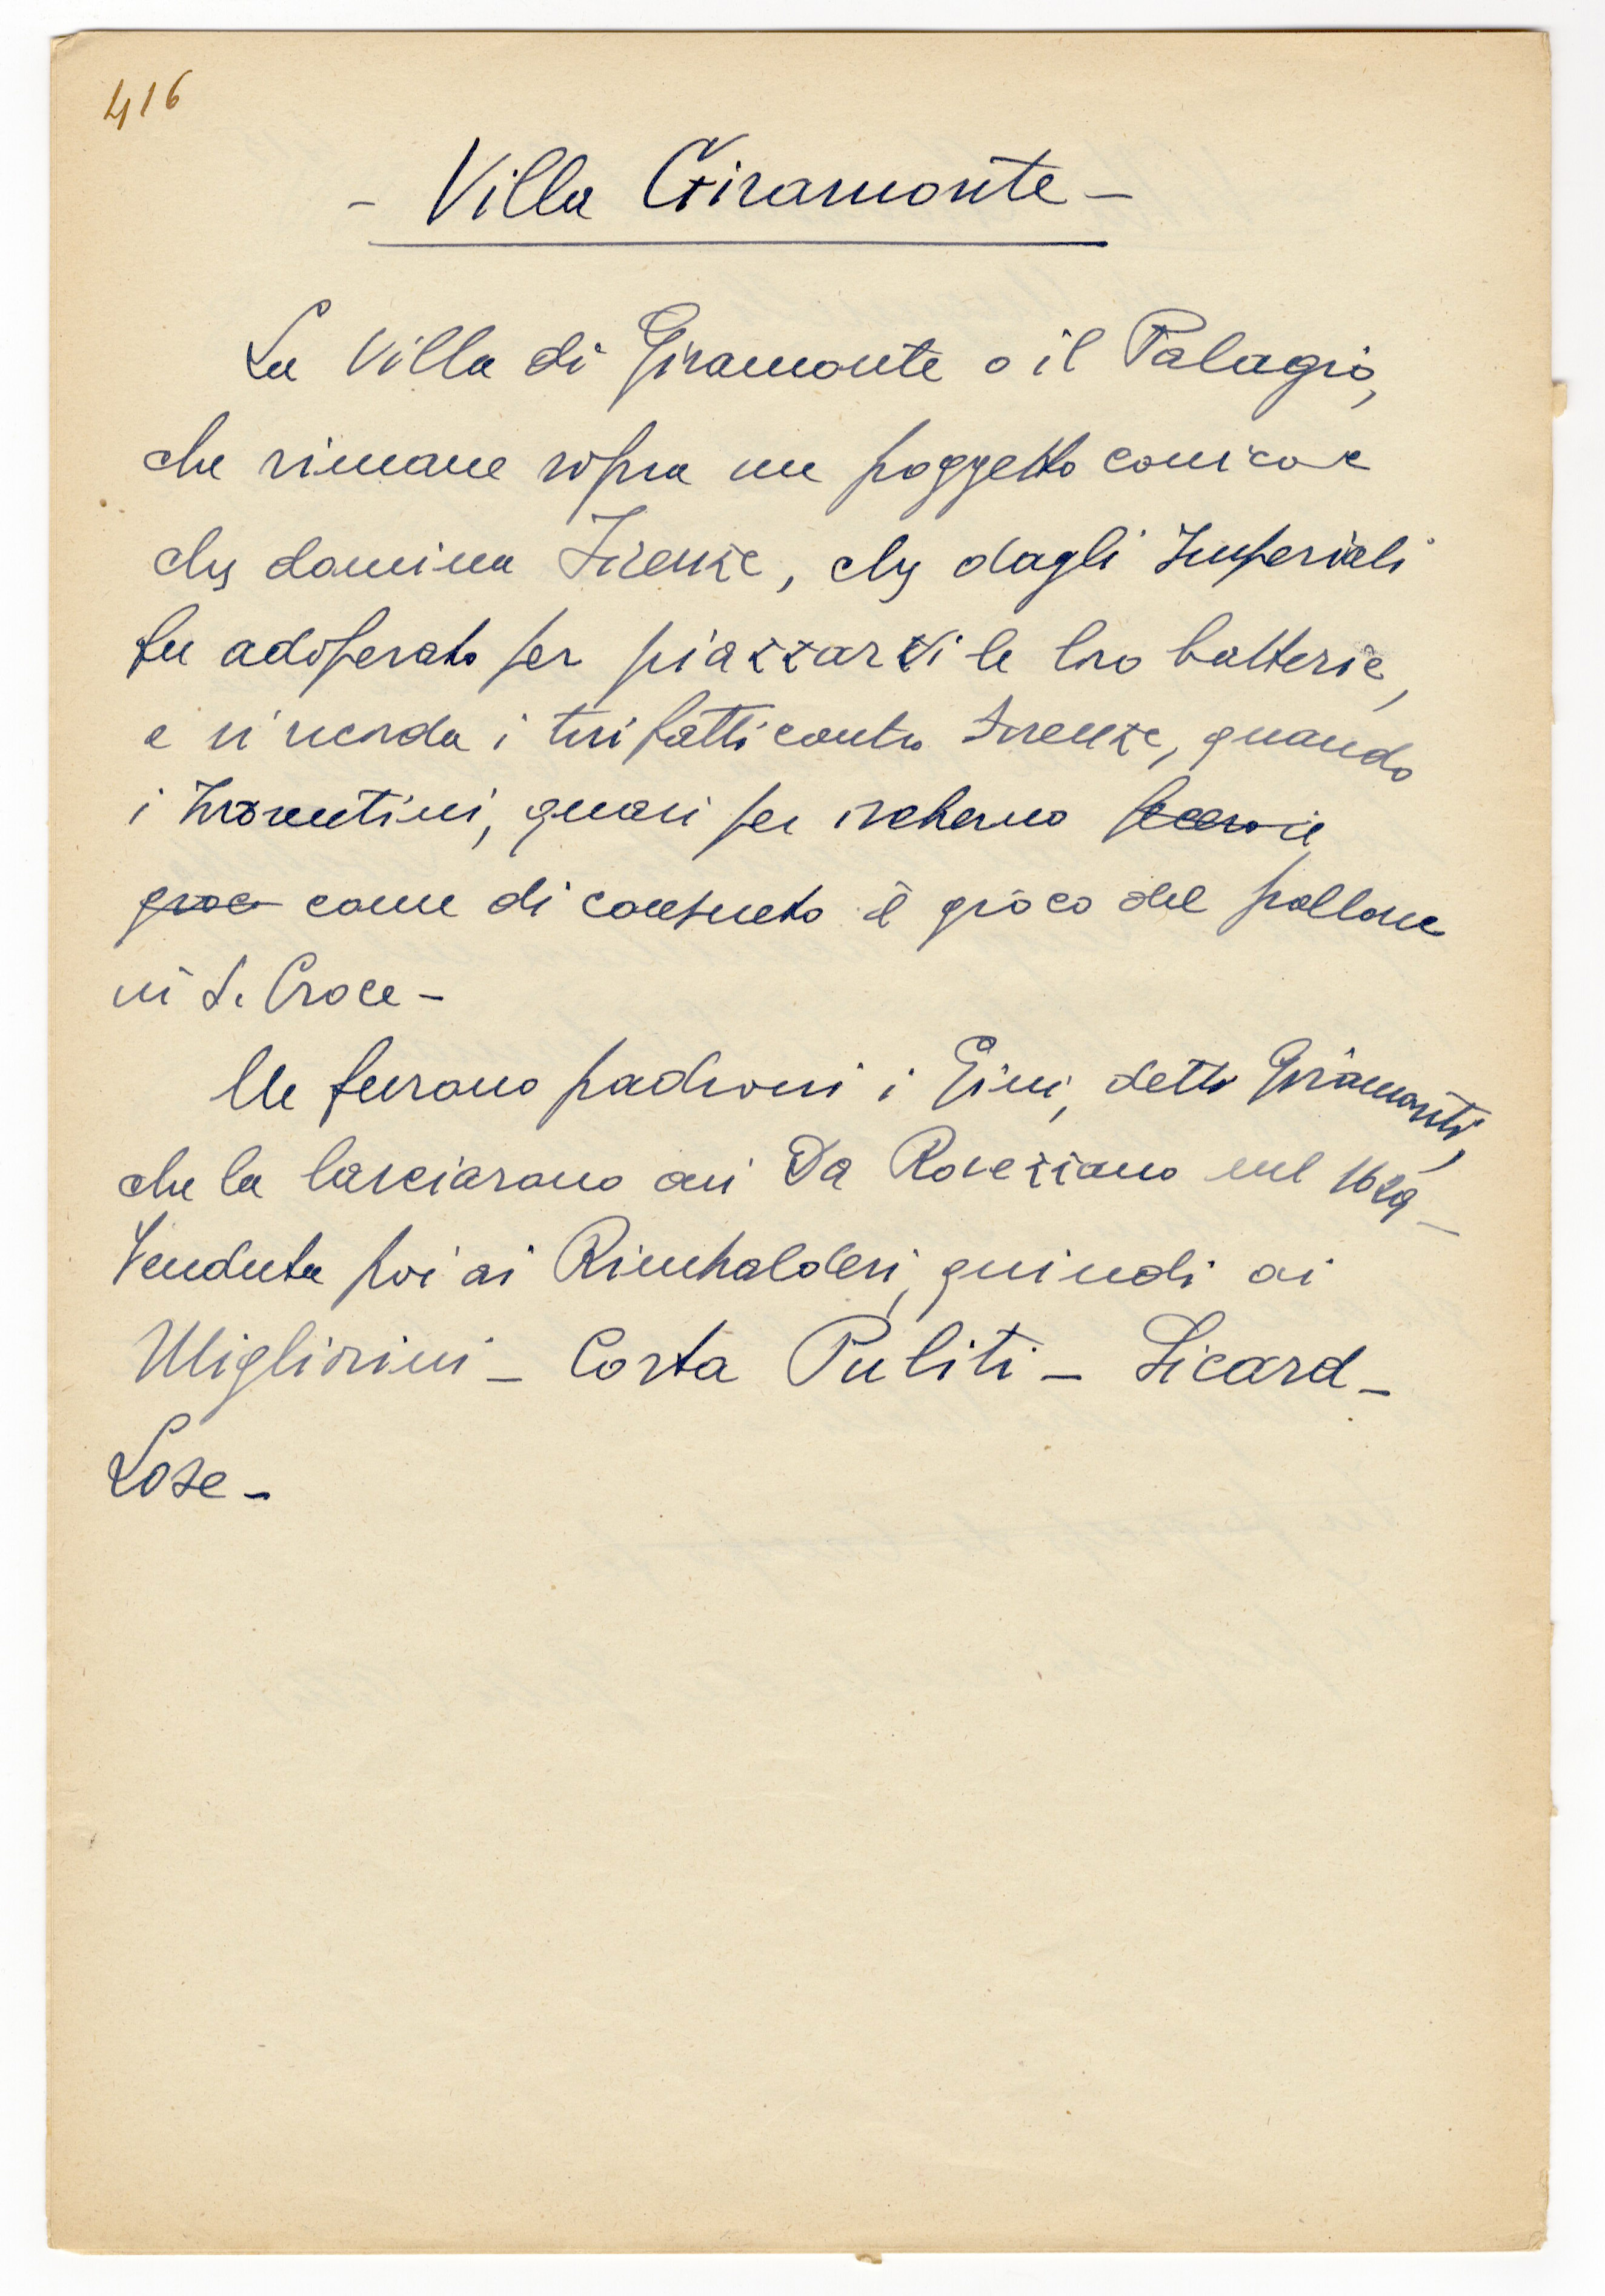 416
- Villa Giramonte -
La Villa di Giramonte o il Palagio,
che rimane sopra un poggetto conico e
che domina Firenze, che dagli Imperiali
fu adoperato per piazzarvi le loro batterie,
e si ricorda i tiri fatti contro Firenze, quando
i Fiorentini, quasi per ischerno fecero il
gioco come di consueto il gioco del pallone
in S. Croce -
Ne furono padroni i Gini, detti Giramonti,
che la lasciarono ai Da Rovezzano nel 1629 -
Venduta poi ai Rimbaldesi, quindi ai
Migliorini - Costa Puliti - Sicard -
Lose -